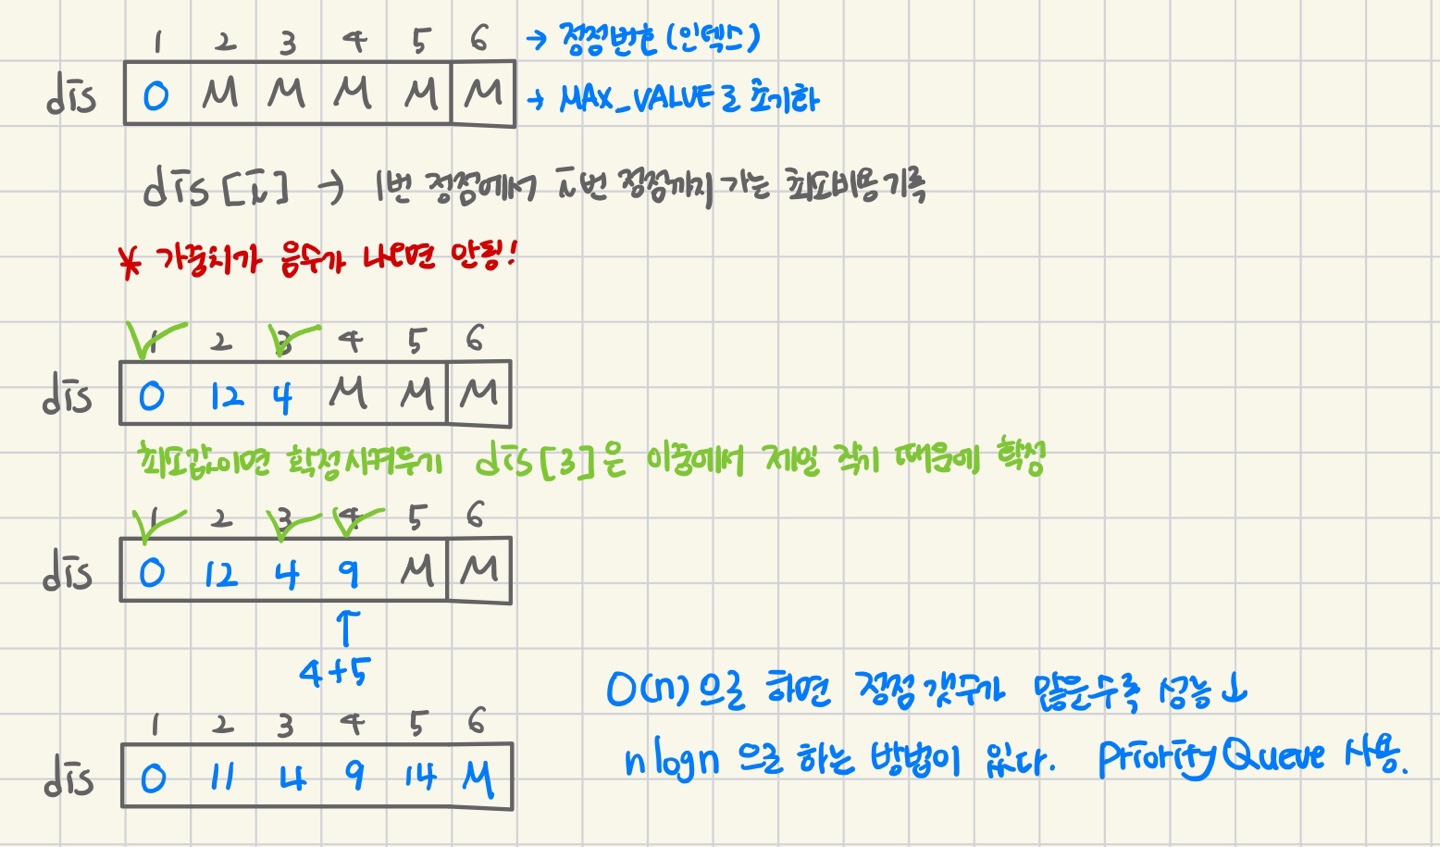 1 2 3 4 5 6 → 정점번호 (인덱스)
dis 0 M M M M M → MAX_VALUE로 초기화
dis[i] → 1번 정점에서 i번 정점까지 가는 최소비용 기록
* 가중치가 음수가 나오면 안됨!
1 2 3 4 5 6
dis 0 12 4 M M M
최소값이면 확정시켜두기 dis[3]은 이중에서 제일 작기 때문에 확정
1 2 3 4 5 6
dis 0 12 4 9 M M
↑
4+5
O(n)으로 하면 정점 갯수가 많을수록 성능↓
1 2 3 4 5 6
nlogn 으로 하는 방법이 있다. PriorityQueue 사용.
dis 0 11 4 9 14 M